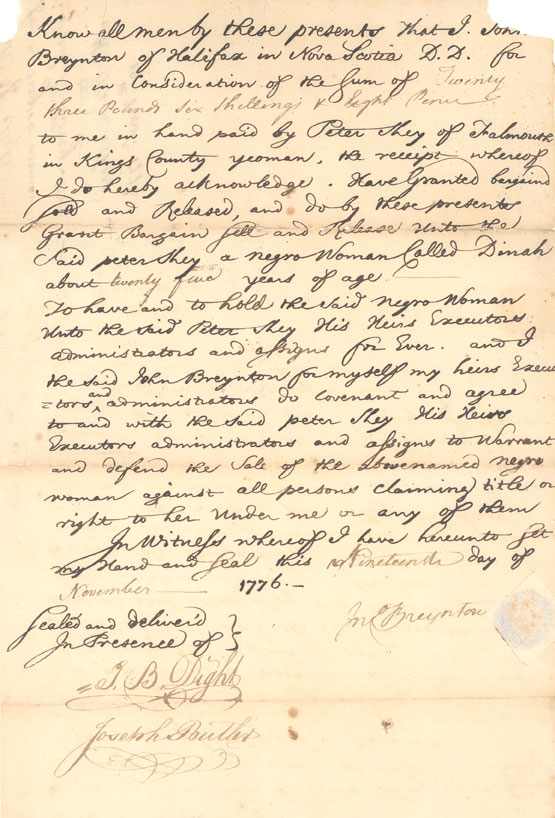 Know all men by these presents that I. John
Breynton of Halifax in Nova Scotia D.D. for
and in Consideration of the Sum of Twenty
three Pounds Six Shillings & Eight Pence
to me in hand paid by Peter Shey of Falmouth
in Kings County yeoman, the receipt whereof
I do hereby acknowledge. Have Granted bargaind
Sold and Released, and do by these presents
Grant Bargain Sell and Release Unto the
Said peter Shey a negro Woman Called Dinah
about twenty five years of age
To have and to hold the said negro Woman
Unto the said Peter Shey His Heirs Executors
administrators and assigns for Ever. and I
the said John Breynton for myself my heirs Execu
=tors and administrators do Covenant and agree
to and with the said peter Shey His Heirs
Executors administrators and assigns to Warrant
and defend the Sale of the abovenamed negro
woman against all persons claiming title or
right to her Under me or any of them
In Witness whereof I have hereunto Set
my Hand and Seal this Nineteenth day of
November 1776.-
Sealed and deliver'd
In Presence of
Jno Breynton
J. B. Dight
Joseph Butler